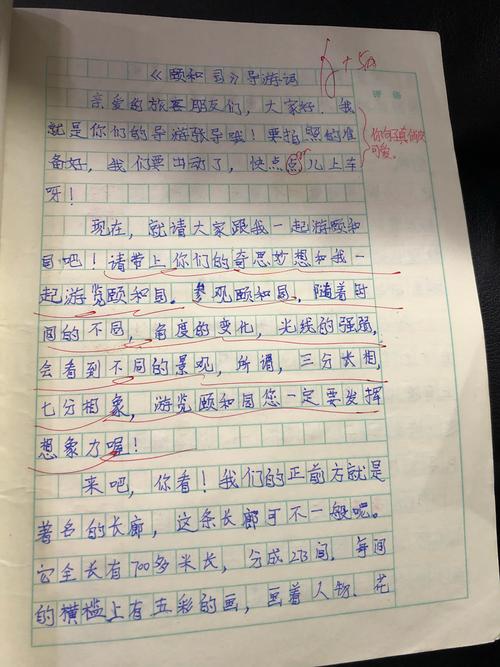 《颐和园》导游词
亲爱的旅客朋友们,大家好.我
就是你们的导游张导哦!要拍照的准
备好,我们要出动了,快点点儿上车
呀!
现在,就请大家跟我一起游颐和
园吧!请带上你们的奇思妙想和我一
起游览颐和园。参观颐和园,随着时
间的不同,角度的变化,光线的强弱,
会看到不同的景观,所谓,三分长相,
七分想象,游览颐和园您一定要发挥
想象力喔!
来吧,你看!我们的正前方就是
著名的长廊,这条长廊可不一般呢。
它全长有700多米长,分成273间,每间
的横槛上有五彩的画,画着人物.花
评语
可爱。